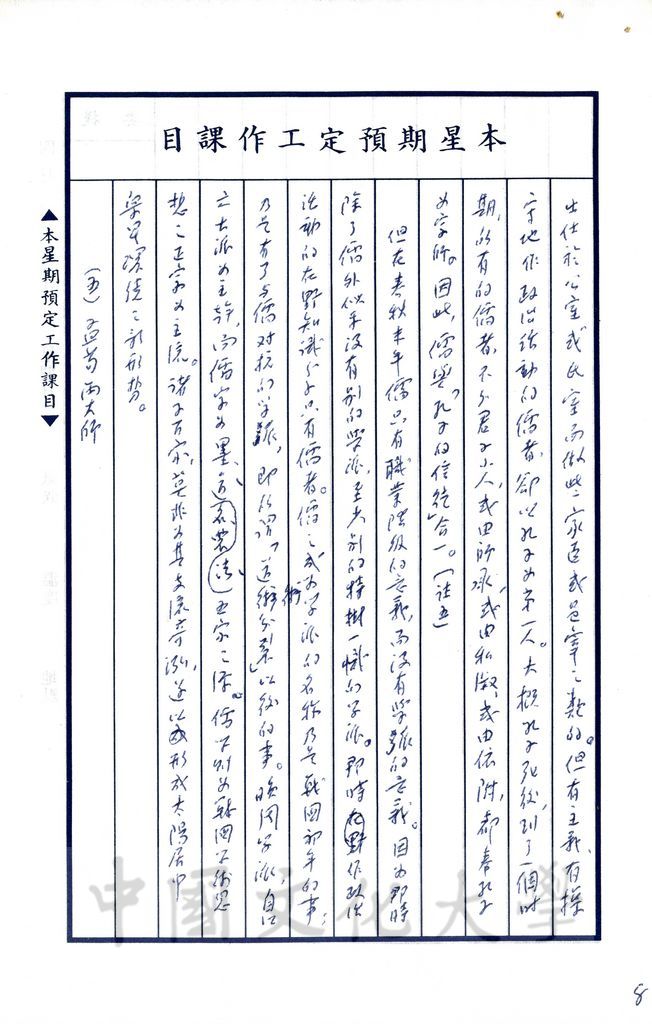 本星期預定工作課目
出仕於公室或氏室而做些家臣或邑宰之類的。但有主義、有操
守地作政治活動的儒者，卻以孔子為第一人。大概孔子死後，到了一個時
期，所有的儒者，不分君子小人，或由師承，或由私淑，或由依附，都奉孔子
為宗師。因此，「儒」與「孔子」的信徒合一。（註五）
但在春秋末年儒只有職業階級的意義，而沒有學派的意義。因為那時
除了儒外似乎沒有別的學派，至少別的特樹一幟的學派。那時在野作政治
活動的在野知識分子只有儒者。儒之成為學派的名稱乃是戰國初年的事；
乃是有了與儒對抗的學派，即所謂「道術分裂」以後的事。晚周學派，自
六大派為主幹，而儒家為墨、道、名、農、法五家之源。儒家則為戰國學術思
想之正宗為主流。諸子百家，莫非為其支流旁派，遂以形成太陽居中
眾星環繞之新形勢。
（五）孟荀兩大師
▲本星期預定工作課目▼
8
中國文化大學